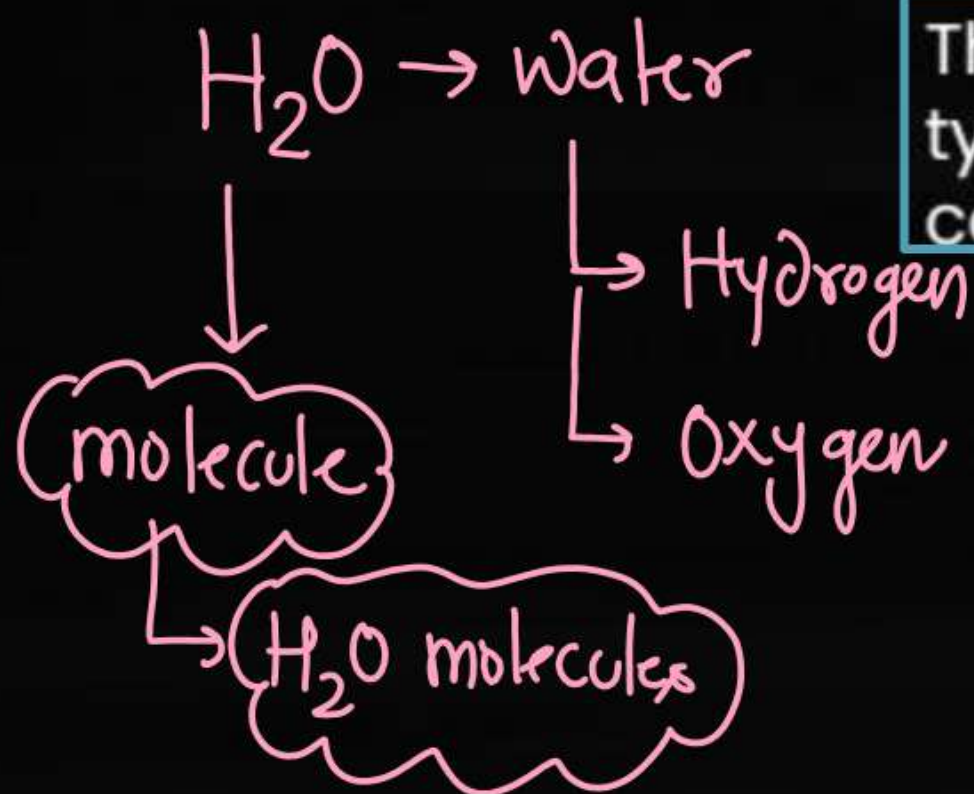 H₂O → water
Hydrogen
Oxygen
molecule
H₂O molecules